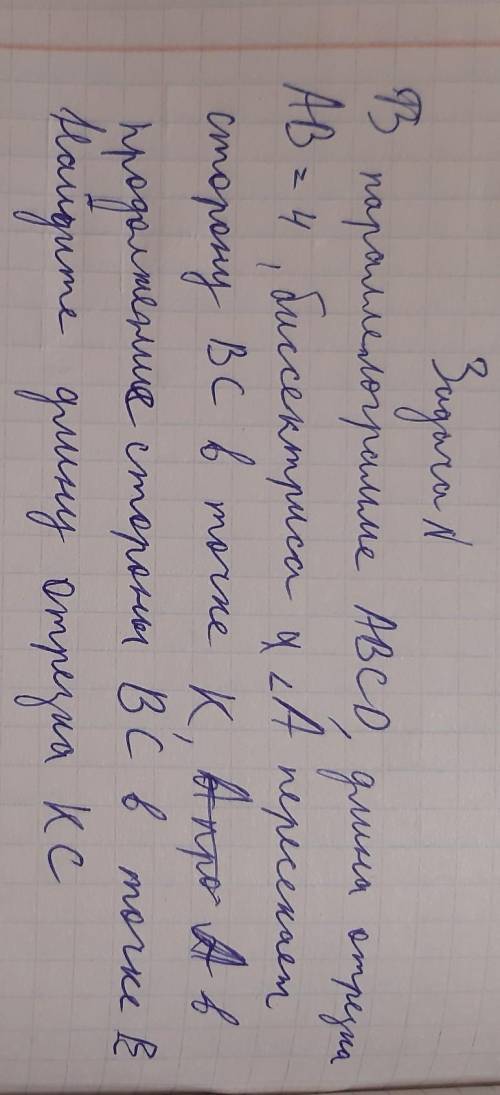 Задача N
В параллелограмме ABCD, длина отрезка
AB = 4, биссектриса ∠A пересекает
сторону BC в точке K, а в
продолжение стороны BC в точке E
Найдите длину отрезка KC